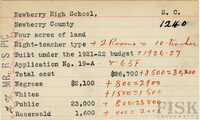 Newberry High School, S. C.
Newberry County 1240
Four acres of land
Eight-teacher type + 2 Rooms = 10-teacher
Built under the 1921-22 budget + 1926-27
Application No. 19-A + 65F
Total cost $26,700 + 3500 = 30,200
Negroes $2,100 + 800 = 2900
Whites + 1500 = 1500
Public 23,000 + 800 =
Rosenwald 1,600 + 400 =
FISK